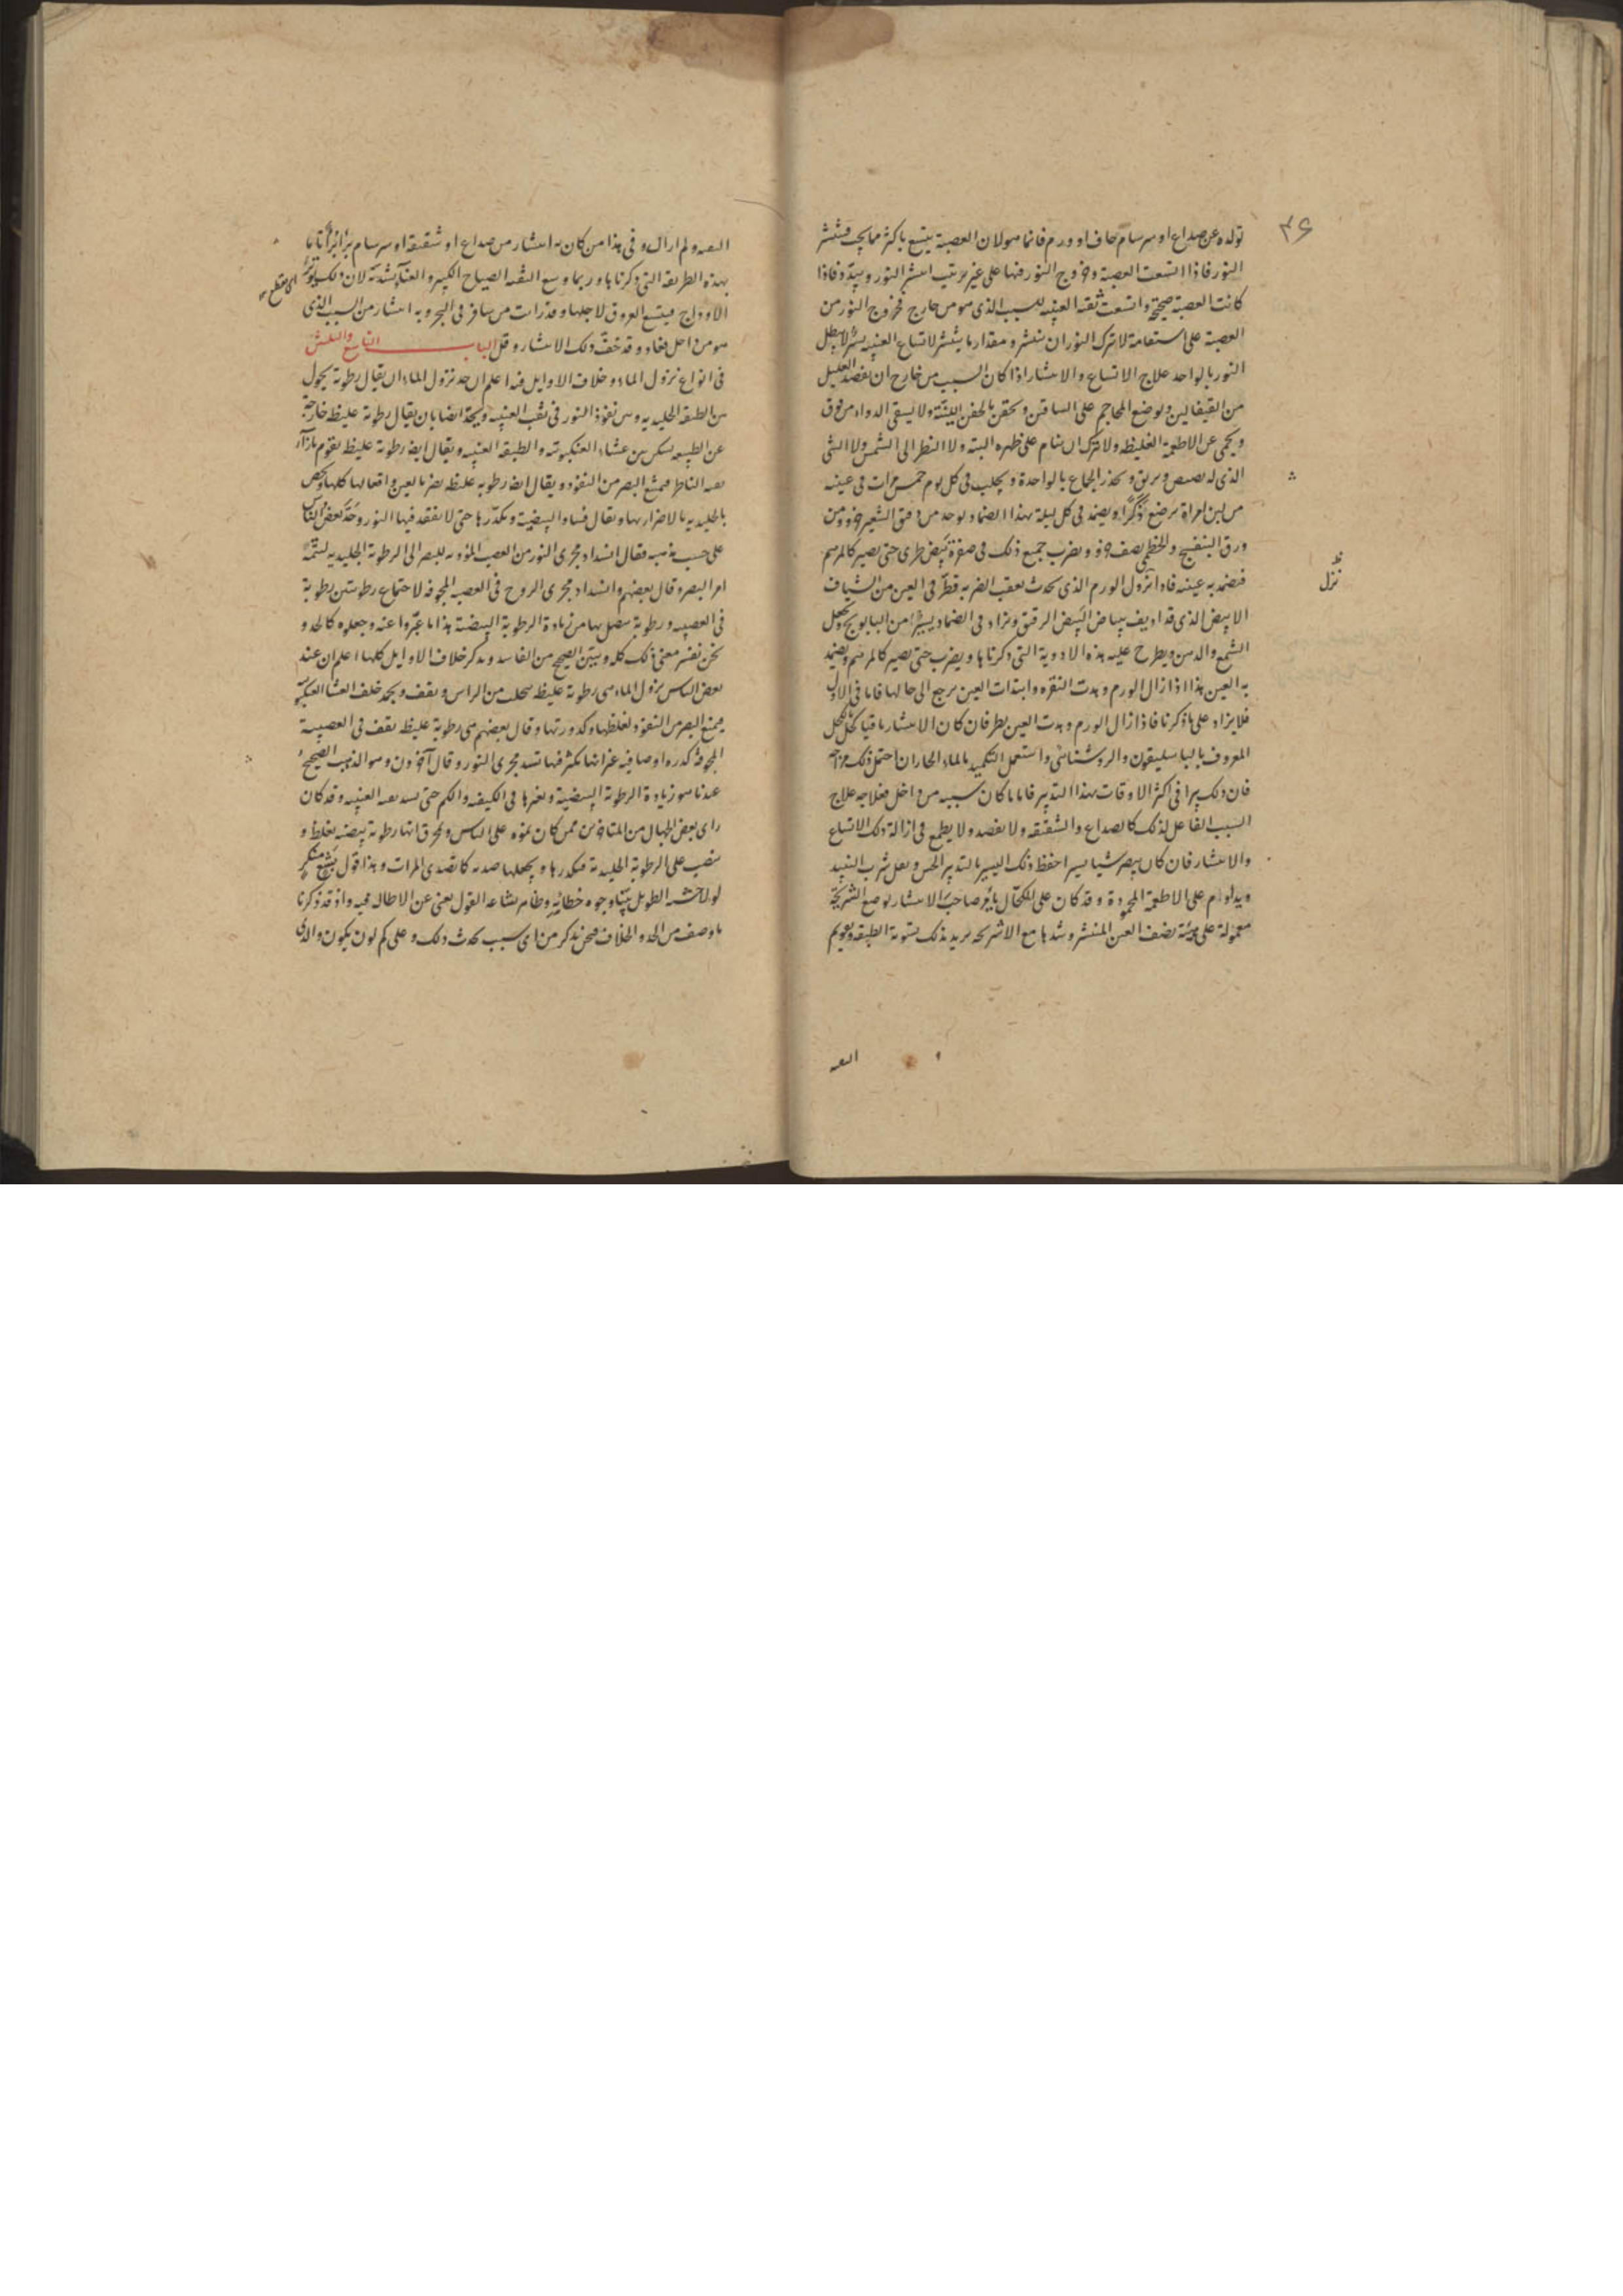 ٣۶
تولده عن صداع او سرسام حاف او ورم فانما هو لان العصبة يتسع باكثر مما يجب فينتشر
النور فاذا اتسعت العصبة وخروج النور فيها على غير ترتيب انتشر النور وتبدد فاذا
كانت العصبة صحيحة واتسعت ثقبه العنبيه للسبب الذى هو من خارج فخروج النور من
العصبة على استقامة لا يترك النور ان ينتشر ومقدار ما ينتشر لاتساع العنبيه يسير لا يبطل
النور بالواحد علاج الاتساع والانتشار اذا كان السبب من خارج ان يفصد العليل
من القيفالين ويوضع المحاجم على الساقين ويحقن بالحقن اللينة ولا يسقى الدواء من فوق
ويحمى عن الاطعمة الغليظه ولا يترك ان ينام على ظهره البتة ولا النظر الى الشمس ولا الشى
الذى له بصيص وبريق ويحذر الجماع بالواحدة ويحلب فى كل يوم خمس مرات فى عينه
من لبن امراة ترضع ذكرا ويضمد فى كل ليلة بهذا الضماد يوخذ من دقيق الشعير جزو ومن
ورق البنفسج والخطمى نصف جزو ويضرب جميع ذلك فى صفرة بيض طرى حتى يصير كالمرهم
فيضمد به عينه فاذا نزول الورم الذى يحدث بعقب الضربه قطر فى العين من الشياف
نزل
الابيض الذى قد اديف ببياض البيض الرقيق ويزاد فى الضماد يسيرا من البابونج ويجعل
الشمع والدهن ويطرح عليه هذه الادوية التى ذكرناها ويضرب حتى يصير كالمرهم ويضمد
به العين هذا اذا زال الورم وهدت النقره وابتدات العين يرجع الى حالها فاما فى الاول
فلا يزاد على ما ذكرنا فاذا زال الورم وهدت العين نظر فان كان الانتشار باقيا كحل بالكحل
المعروف بالباسليقون والروشنائى واستعمل التكميد بالماء الحار ان احتمل ذلك مزاجه
فان ذلك يبرا فى اكثر الاوقات بهذا التدبير فاما ما كان سببه من داخل فعلاجه علاج
السبب الفاعل لذلك كالصداع والشقيقه ولا يفصد ولا يطمع فى ازالة ذلك الاتساع
والانتشار فان كان يبصر شيا يسيرا حفظ ذلك اليسير بالتدبير الحسن ويقل شرب النبيذ
ويداوم على الاطعمة المحمودة وقد كان على الكحال يامر صاحب الانتشار بوضع الشريحة
معمولة على هيئة نصف العين المنتشر وشدها مع الاشرحه يريد بذلك تسوية الطبقه وتقويم
الثقبه
الثقبه ولم ازال وفى هذا من كان به انتشار من صداع او شقيقة او سرسام برا برأ تاما
بهذه الطريقه التى ذكرناها وربما وسع الثقبه الصياح الكثير والغنا بشدة لان ذلك يوتر
اى يقطع
الاوداج فيتسع العروق لاجلها وقد رات من سافر فى البحر وبه انتشار من السبب الذى
هو من داخل فعاد وقد خف ذلك الانتشار وقل الباب التاسع والثلثين
فى انواع نزول الماء وخلاف الاوايل فيه اعلم ان حد نزول الماء ان يقال رطوبة يحول
بين الطبقه الجليديه وبين نفوذ النور فى ثقب العنبيه ويحد ايضا بان يقال رطوبة غليظ خارجة
عن الطبيعه تسكن بين غشاء العنكبوتيه والطبقه العنبيه ويقال ايضا رطوبة غليظه تقوم بازاء
ثقبه الناظر فيمنع البصر من النفوذ ويقال ايضا رطوبه غليظه يضر بالعين وافعالها كلها ويخص
بالجليديه بالاضرار بها ويقال فساد البيضية وتكدرها حتى لا ينفذ فيها النور وحد بعض الناس
على حسب مذهبه فقال انسداد مجرى النور من العصب المودى للبصر الى الرطوبة الجليديه ليتم
امر البصر وقال بعضهم انسداد مجرى الروح فى العصب المجوفه لاجتماع رطوبتين رطوبة
فى العصبيه ورطوبة يتصل بها من زيادة الرطوبة البيضية هذا ما عبروا عنه وجعلوه كالحد و
نحن نفسر معنى ذلك كله ونبين الصحيح من الفاسد ونذكر خلاف الاوايل كلها اعلم ان عند
بعض الناس نزول الماء هى رطوبة غليظه يتحلب من الراس ويقف ويجمد خلف الغشاء العنكبوتى
يمنع البصر من النفوذ لغلظها وكدورتها وقال بعضهم هى رطوبة غليظه يقف فى العصبية
المجوفه كدره او صافيه غير انها يكثر فيها تسد مجرى النور وقال آخرون وهو المذهب الصحيح
عندنا هو زيادة الرطوبة البيضية وتغيرها فى الكيفيه والكم حتى يسد ثقبه العنبيه وقد كان
راى بعض الجهال من المتاخرين ممن كان يموه على الناس ويخرق انها رطوبة بيضيه يغلظ و
ينصب على الرطوبة الجليدية فيكدرها ويجعلها صدية كما تصدى المرات وهذا قول بشع منكر
لولا خشية الطويل بينا وجوه خطائه وظاهر بشاعه القول يغنى عن الاطاله فيه واذ قد ذكرنا
ما وصف من الحد والخلاف فنحن نذكر من اى سبب يحدث ذلك وعلى كم لون يكون والذى